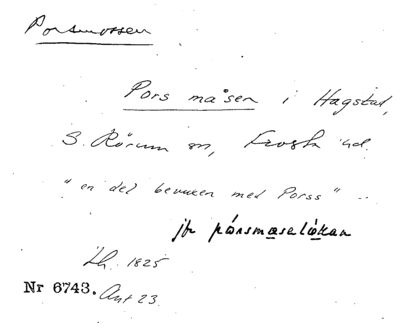 Porsmossen
Pors måsen i Hagstad,
S. Rörum sn, Frosta hd.
"en del bevuxen med Porss" ..
jfr pörsmasalökan
Lh. 1825
Nr 6743. Ant 23.